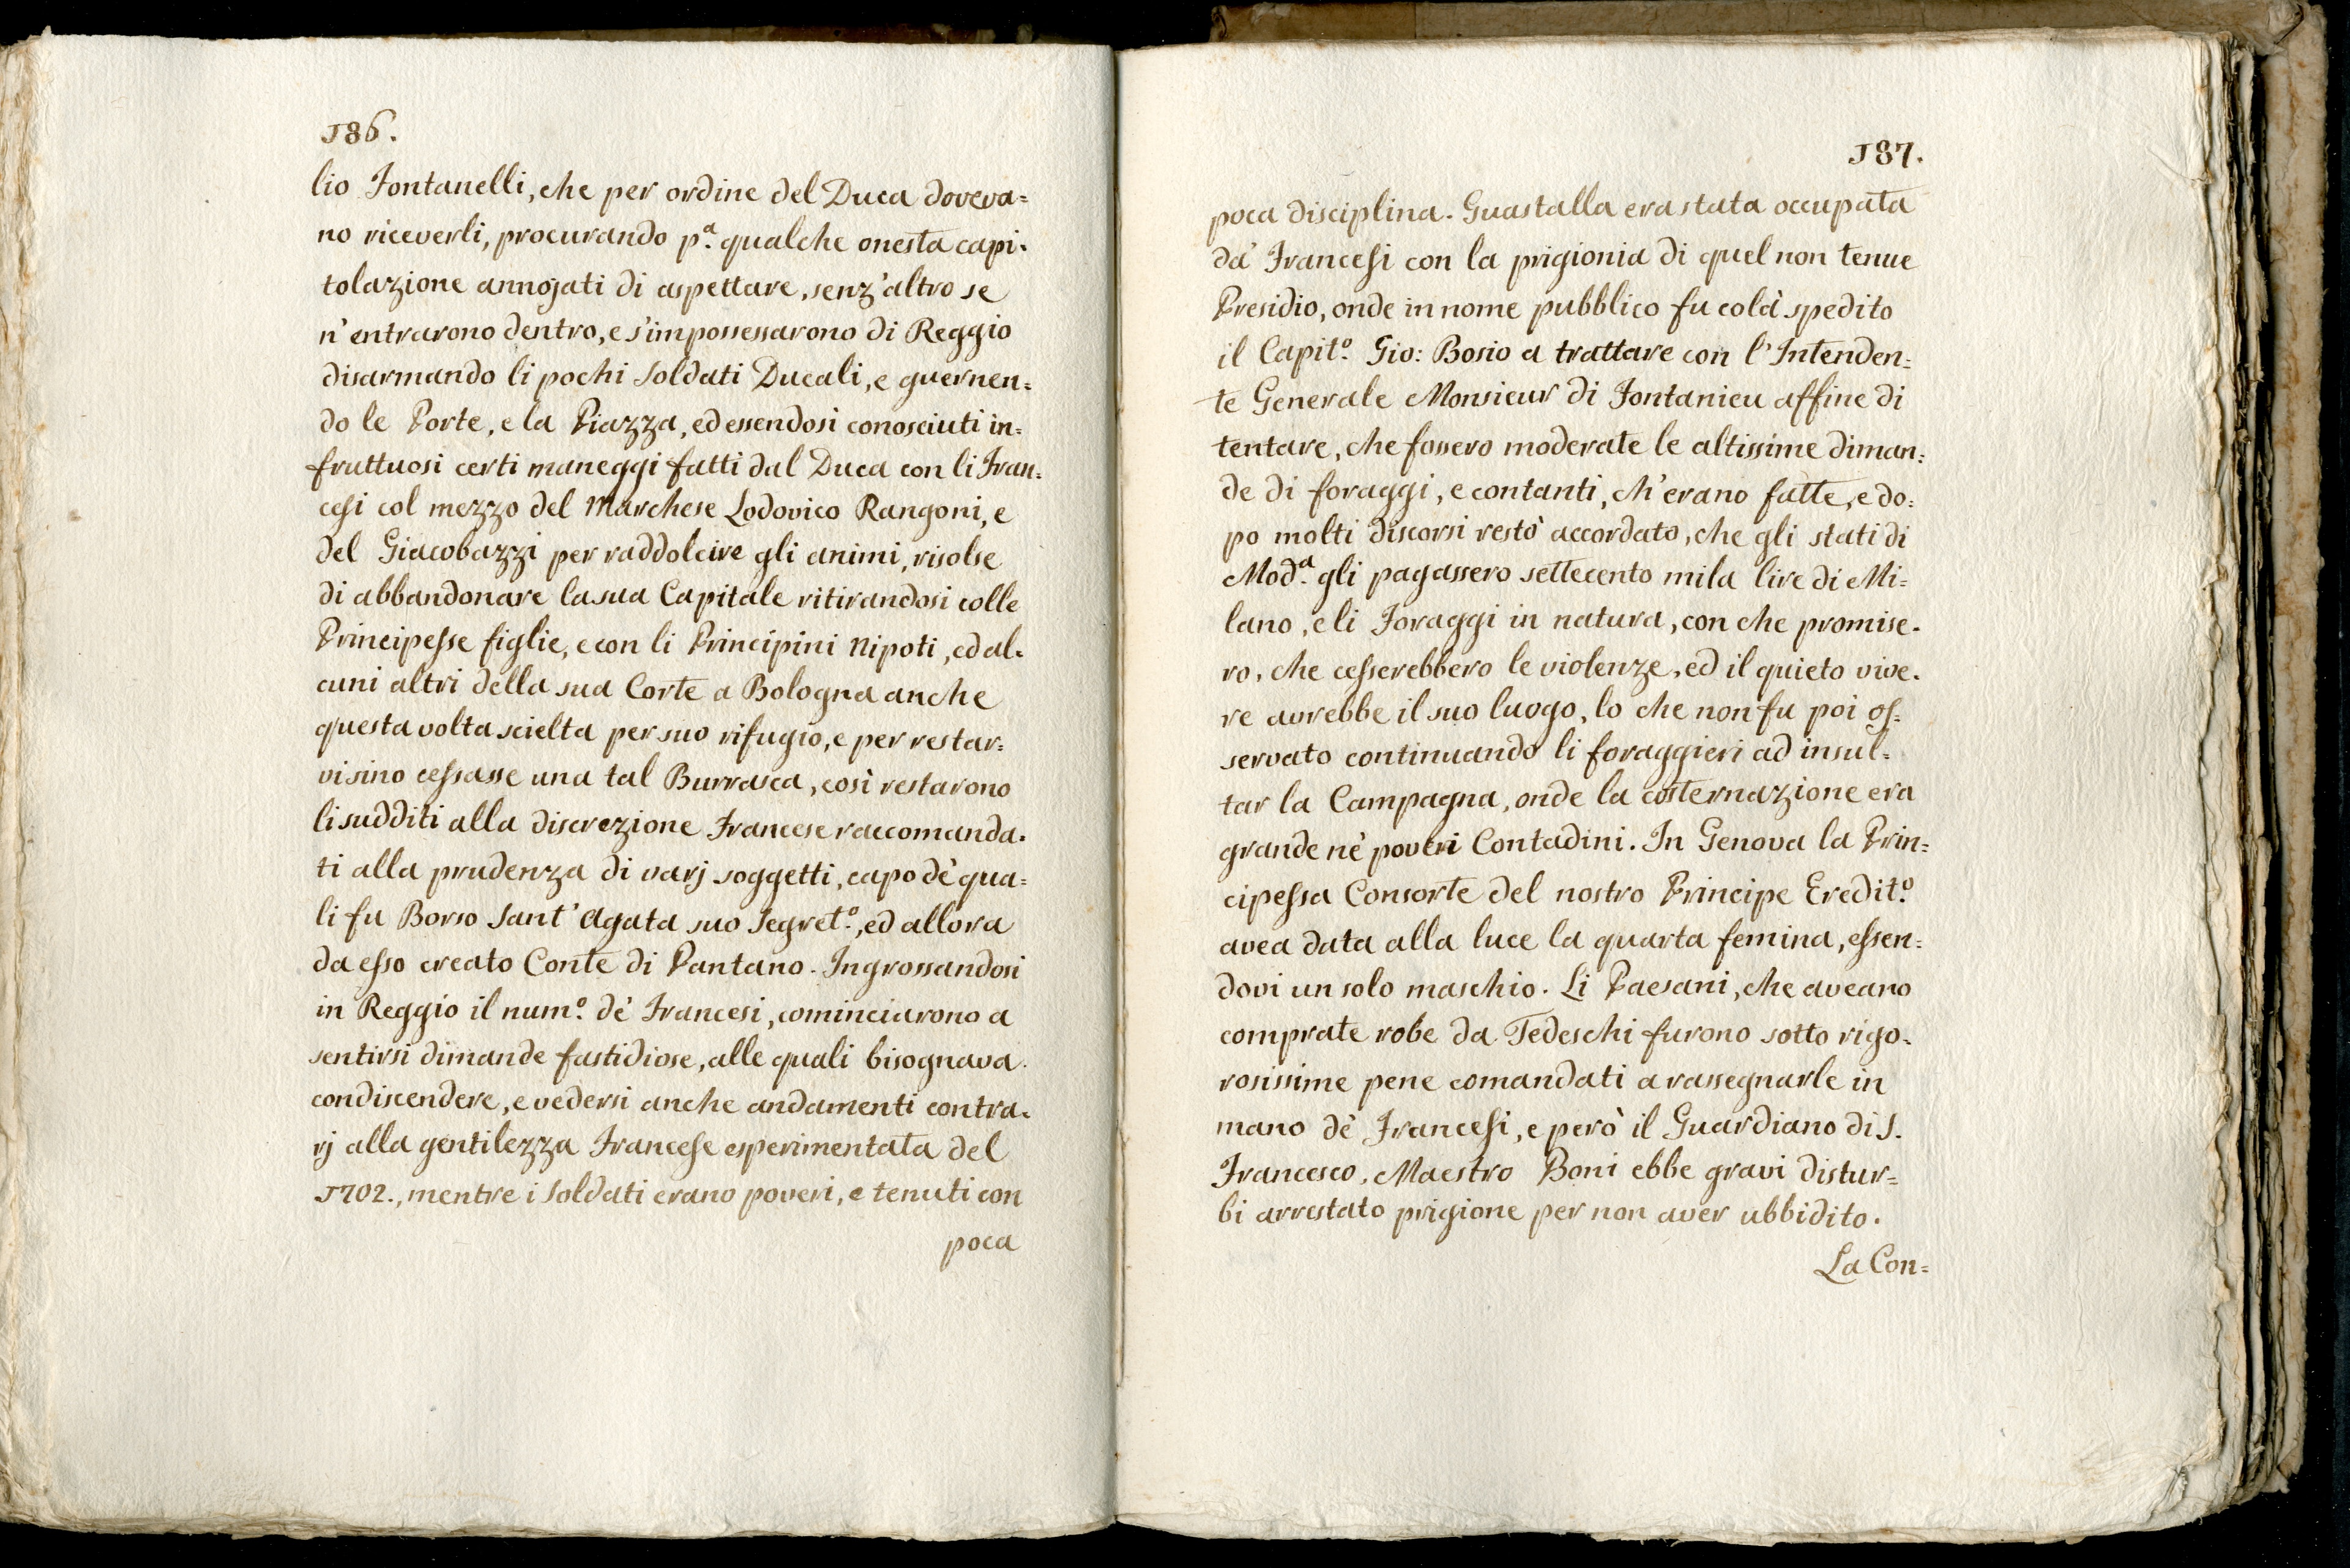 186.
lio Fontanelli, che per ordine del Duca doveva=
no riceverli, procurando p.ª qualche onesta capi=
tolazione annojati di aspettare, senz'altro se
n'entrarono dentro, e s'impossessarono di Reggio
disarmando li pochi Soldati Ducali, e guernen=
do le Porte, e la Piazza, ed essendosi conosciuti in=
fruttuosi certi maneggi fatti dal Duca con li Fran=
cesi col mezzo del Marchese Lodovico Rangoni, e
del Giacobazzi per raddolcire gli animi, risolse
di abbandonare la sua Capitale ritirandosi colle
Principesse figlie, e con li Principini Nipoti, ed al=
cuni altri della sua Corte a Bologna anche
questa volta scielta per suo rifugio, e per restar=
vi sino cessasse una tal Burrasca, così restarono
li sudditi alla discrezione Francese raccomanda=
ti alla prudenza di varj soggetti, capo dè qua=
li fu Borso Sant'Agata suo Segret.º, ed allora
da esso creato Conte di Pantano. Ingrossandosi
in Reggio il num.º dè Francesi, cominciarono a
sentirsi dimande fastidiose, alle quali bisognava
condiscendere, e vedersi anche andamenti contra=
rj alla gentilezza Francese esperimentata del
1702., mentre i Soldati erano poveri, e tenuti con
poca
187.
poca disciplina. Guastalla era stata occupata
da' Francesi con la prigionia di quel non tenue
Presidio, onde in nome pubblico fu colà spedito
il Capit.º Gio: Bosio a trattare con l'Intenden=
te Generale Monsieur di Fontanieu affine di
tentare, che fossero moderate le altissime diman=
de di foraggi, e contanti, ch'erano fatte, e do=
po molti discorsi restò accordato, che gli stati di
Mod.ª gli pagassero settecento mila lire di Mi=
lano, e li Foraggi in natura, con che promise=
ro, che cesserebbero le violenze, ed il quieto vive=
re avrebbe il suo luogo, lo che non fu poi os=
servato continuando li foraggieri ad insul=
tar la Campagna, onde la costernazione era
grande nè poveri Contadini. In Genova la Prin=
cipessa Consorte del nostro Principe Eredit.º
avea data alla luce la quarta femina, essen=
dovi un solo maschio. Li Paesani, che aveano
comprate robe da Tedeschi furono sotto rigo=
rosissime pene comandati a rassegnarle in
mano dè Francesi, e però il Guardiano di S.
Francesco, Maestro Boni ebbe gravi distur=
bi arrestato prigione per non aver ubbidito.
La Con=